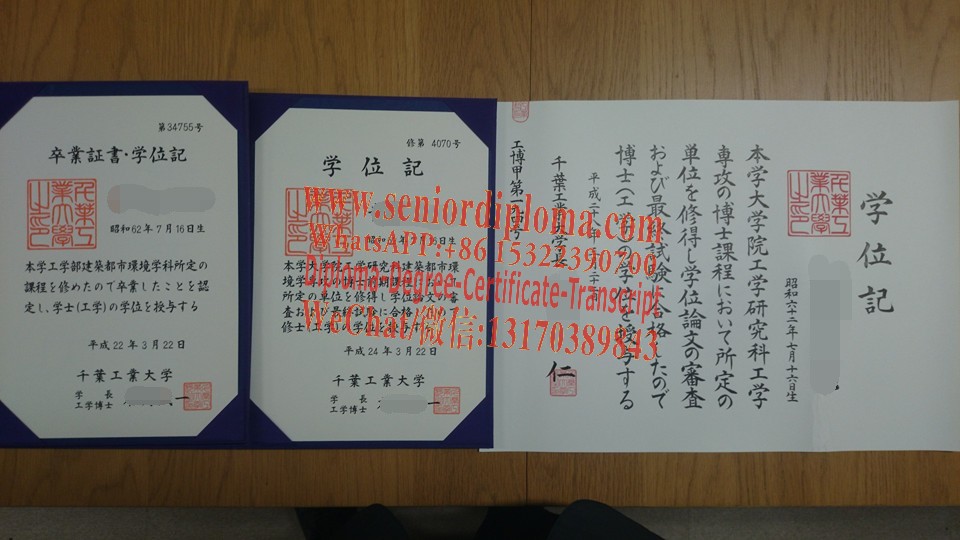 第34755号
卒業証書・学位記
昭和62年7月16日生
本学工学部建築都市環境学科所定の
課程を修めたので卒業したことを認
定し、学士(工学)の学位を授与する
平成22年3月22日
千葉工業大学
学長
工学博士 一
修第 4070号
学位記
本学大学院工学研究科建築都市環
境学専攻の博士前期課程において
所定の単位を修得し学位論文の審
査および最終試験に合格したので
修士(工学)の学位を授与する
平成24年3月22日
千葉工業大学
学長
工学博士 一
学位記
昭和六十二年七月十六日生
本学大学院工学研究科工学
専攻の博士課程において所定の
単位を修得し学位論文の審査
および最終試験に合格したので
博士(工学)の学位を授与する
平成二十
千葉工業大学長 仁
工博甲第一
www.seniordiploma.com
WhatsAPP:+86 15322390700
Diploma-Degree-Certificate-Transcript
WeChat/微信:13170389843